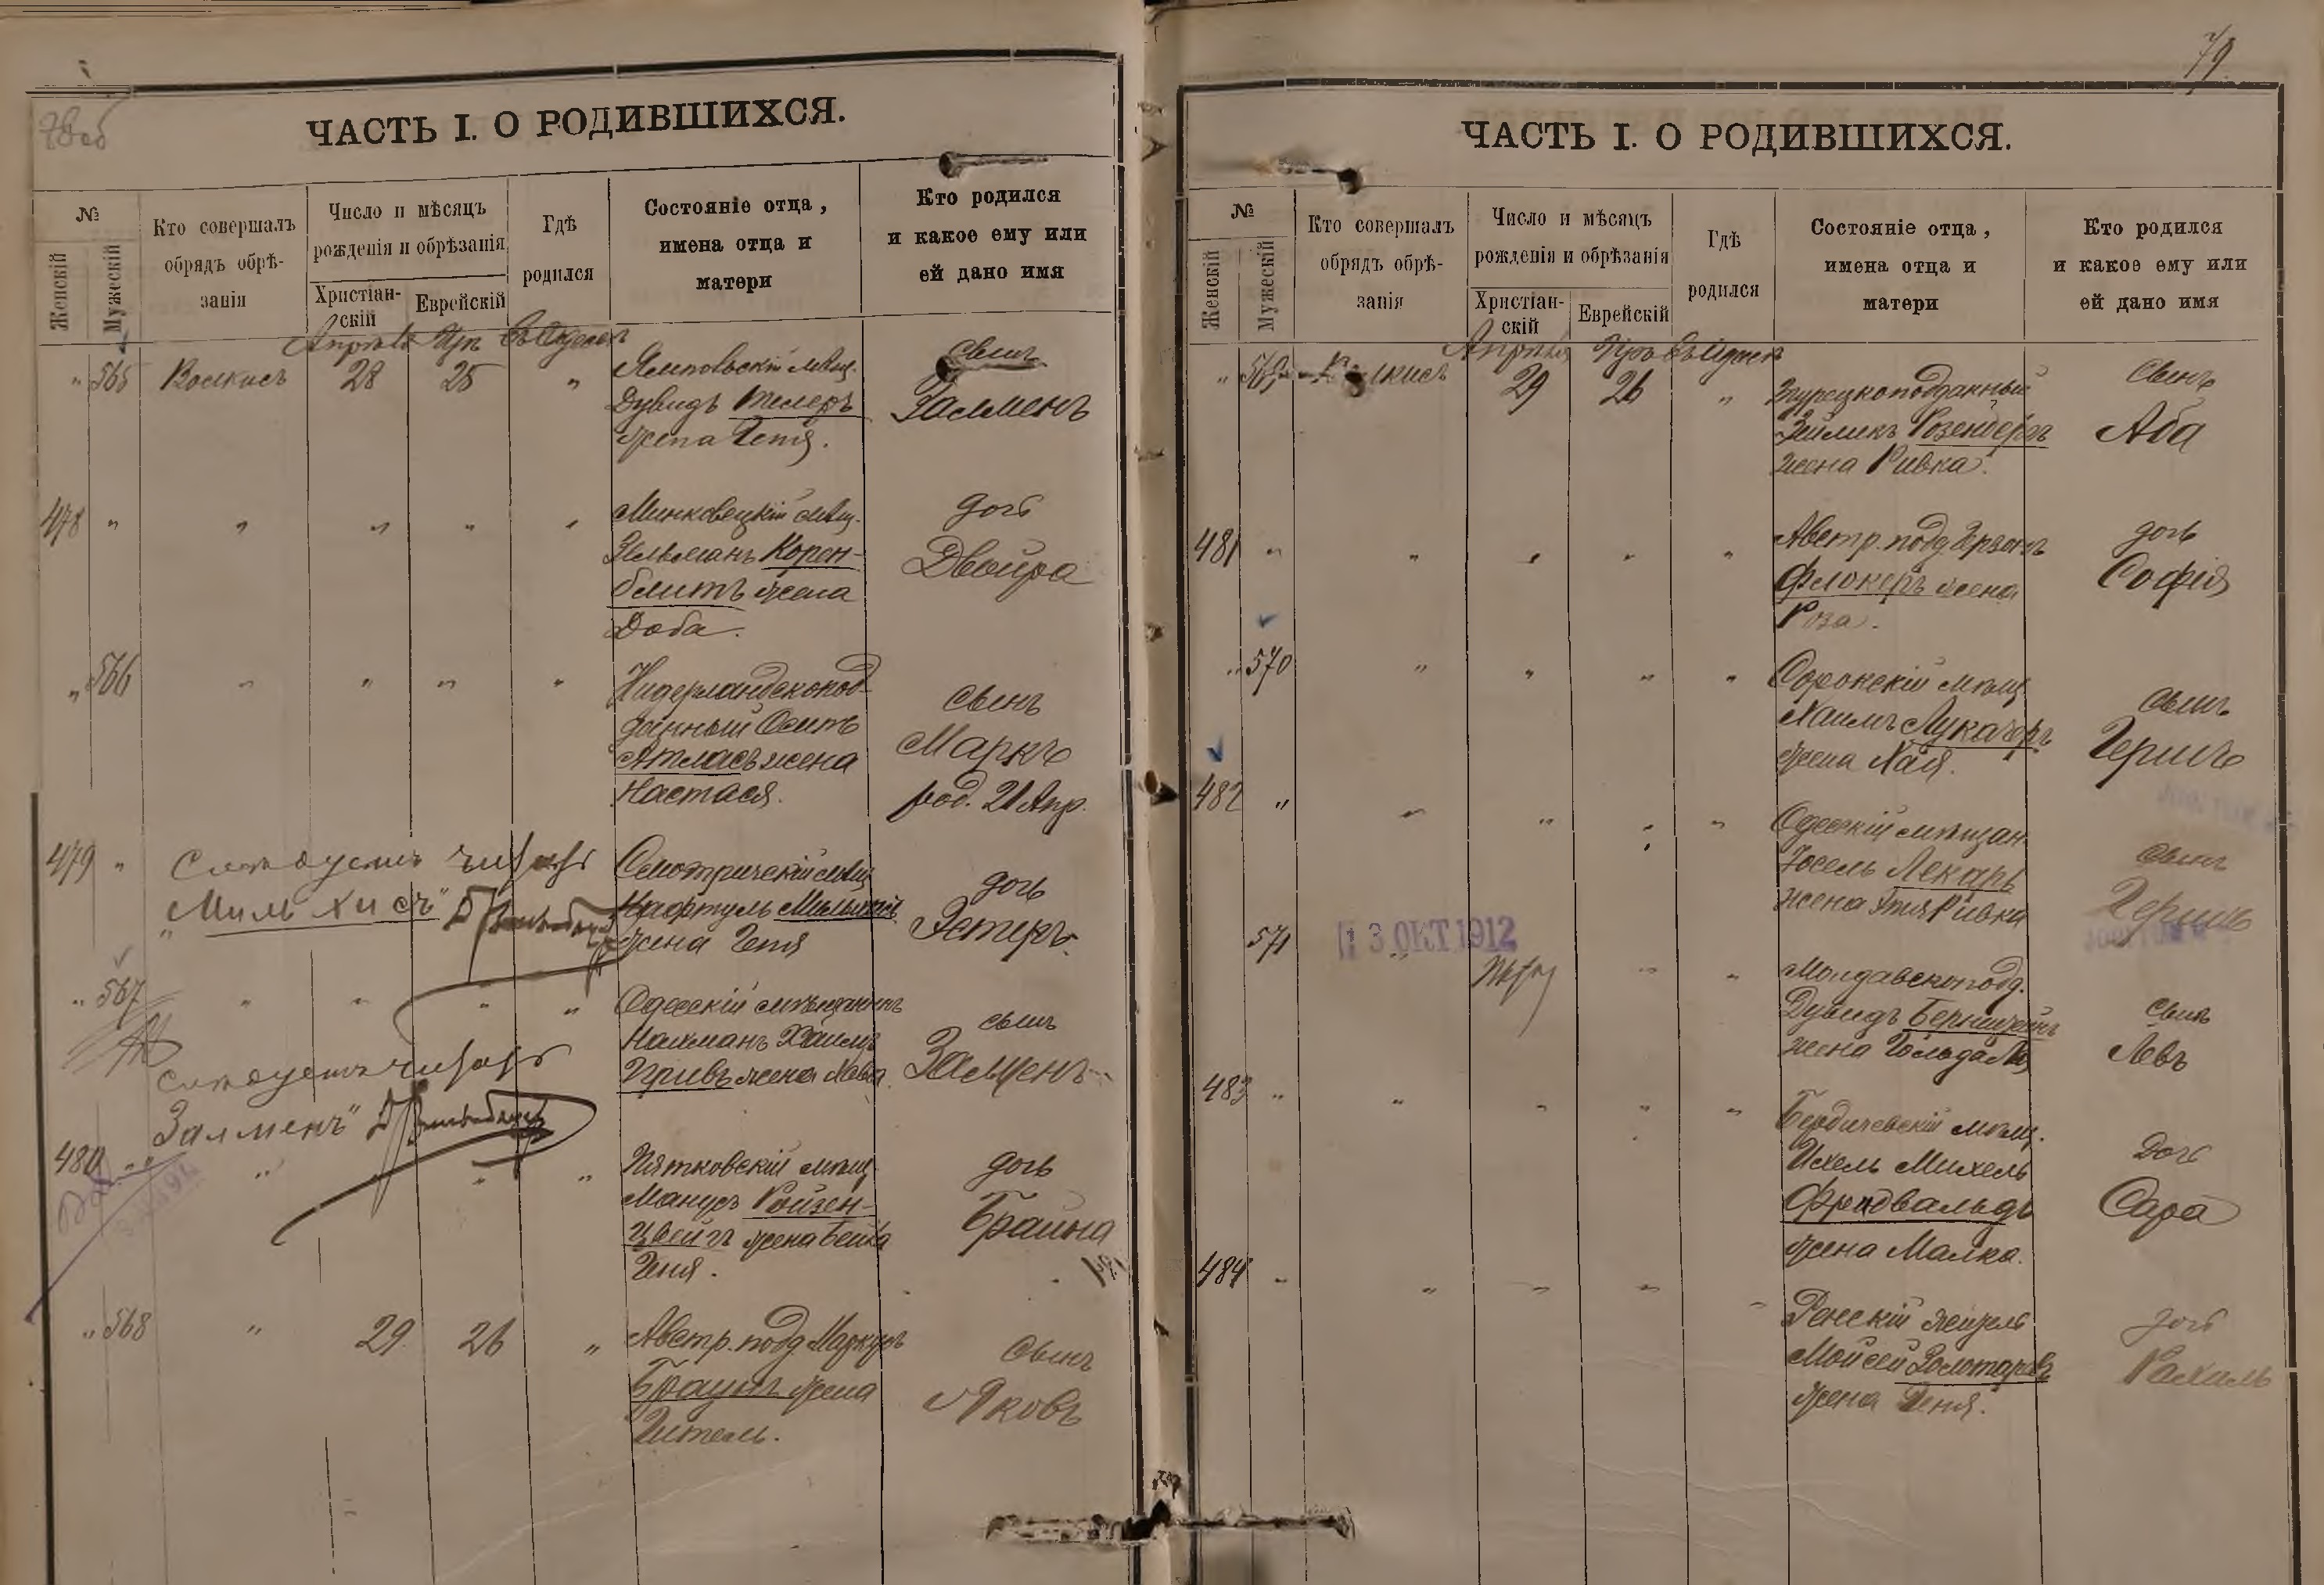 78об
ЧАСТЬ I. О РОДИВШИХСЯ.
№
Женскій
Мужескій
Кто совершалъ
обрядъ обрѣ-
занія
Число и мѣсяцъ
рожденія и обрѣзанія
Христіан-
скій
Еврейскій
Гдѣ
родился
Состояніе отца,
имена отца и
матери
Кто родился
и какое ему или
ей дано имя
Апрѣля Иръ Въ Одессѣ
" 565 Волкисъ 28 25 "
Ямповскій мѣщ.
Дувидъ Телеръ
жена Гентя.
сынъ
Залменъ
478 " " " " "
Минковецкій мѣщ.
Зельманъ Корен-
блитъ жена
Доба.
дочь
Двойра
" 566 " " " "
Нидерландскопод-
данный Осипъ
Атласъ жена
Настася.
сынъ
Маркъ
род. 21 Апр.
479 "
Слѣдуетъ читать
"Мильхисъ"
Смотричскій мѣщ
Нафтуль Мильхисъ
жена Геня
дочь
Эстеръ
" 567 " " " "
Одесскій мѣщанинъ
Нахманъ Хаимъ
Привъ жена Хава
сынъ
Залменъ
слѣдуетъ читать
Залменъ"
480 " " " "
Пятковскій мѣщ.
Манусъ Ройзен-
цвейгъ жена Бейла
Геня.
дочь
Брайна
" 568 " 29 26 "
Австр. подд. Маркусъ
Браунъ жена
Гитель.
сынъ
Яковъ
79
ЧАСТЬ I. О РОДИВШИХСЯ.
№
Женскій
Мужескій
Кто совершалъ
обрядъ обрѣ-
занія
Число и мѣсяцъ
рожденія и обрѣзанія
Христіан-
скій
Еврейскій
Гдѣ
родился
Состояніе отца,
имена отца и
матери
Кто родился
и какое ему или
ей дано имя
Апрѣля Иръ Въ Одессѣ
" 569 Волкисъ 29 26 "
Турецкоподданный
Зейликъ Розенбергъ
жена Ривка.
сынъ
Аба
481 " " " " "
Австр. подд.
Флокеръ жена
Роза.
дочь
Софія
" 570 " " " "
Сорокскій мѣщ
Хаимъ Лукачеръ
жена Хая.
сынъ
Гершъ
482 " " " " "
Одесскій мѣщан.
Іосель Лекарь
жена Этя Ривка
сынъ
Гершъ
571 " " "
3 ОКТ 1912
Молдавскопод.
Дувидъ Бернштейнъ
жена Гольда
сынъ
Левъ
483 " " " " "
Бердичевскій мѣщ.
Ихель Михель
Фридвальдъ
жена Малка.
дочь
Сара
484 " " " " "
Ренскій житель
Мойсей Золотаревъ
жена Геня.
дочь
Рахиль